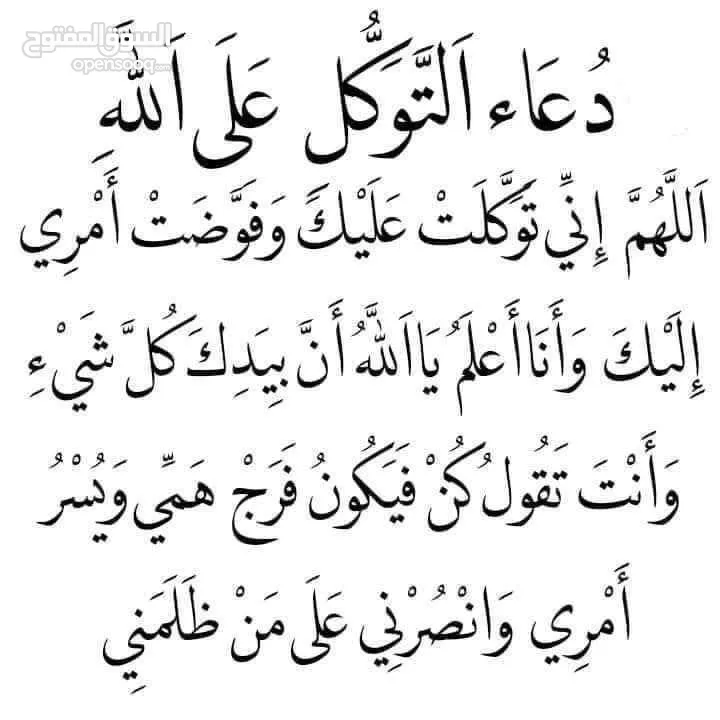 السوق المفتوح
opensooq.com
دُعَاء اَلتَّوَكُّل عَلَى اَللَّهِ
اَللَّهُمَّ إِنِّي تَوَكَّلَتْ عَلَيْكَ وَفَوَّضَتْ أَمْرِي
إِلَيْكَ وَأَنَا أَعْلَمُ يَا اَللَّهُ أَنَّ بِيَدِكَ كُلَّ شَيْءِ
وَأَنْتَ تَقُولُ كُنْ فَيَكُونُ فَرَجْ هَمِّي وَيُسْرُ
أَمْرِي وَانْصُرْنِي عَلَى مَنْ ظَلَمَنِي